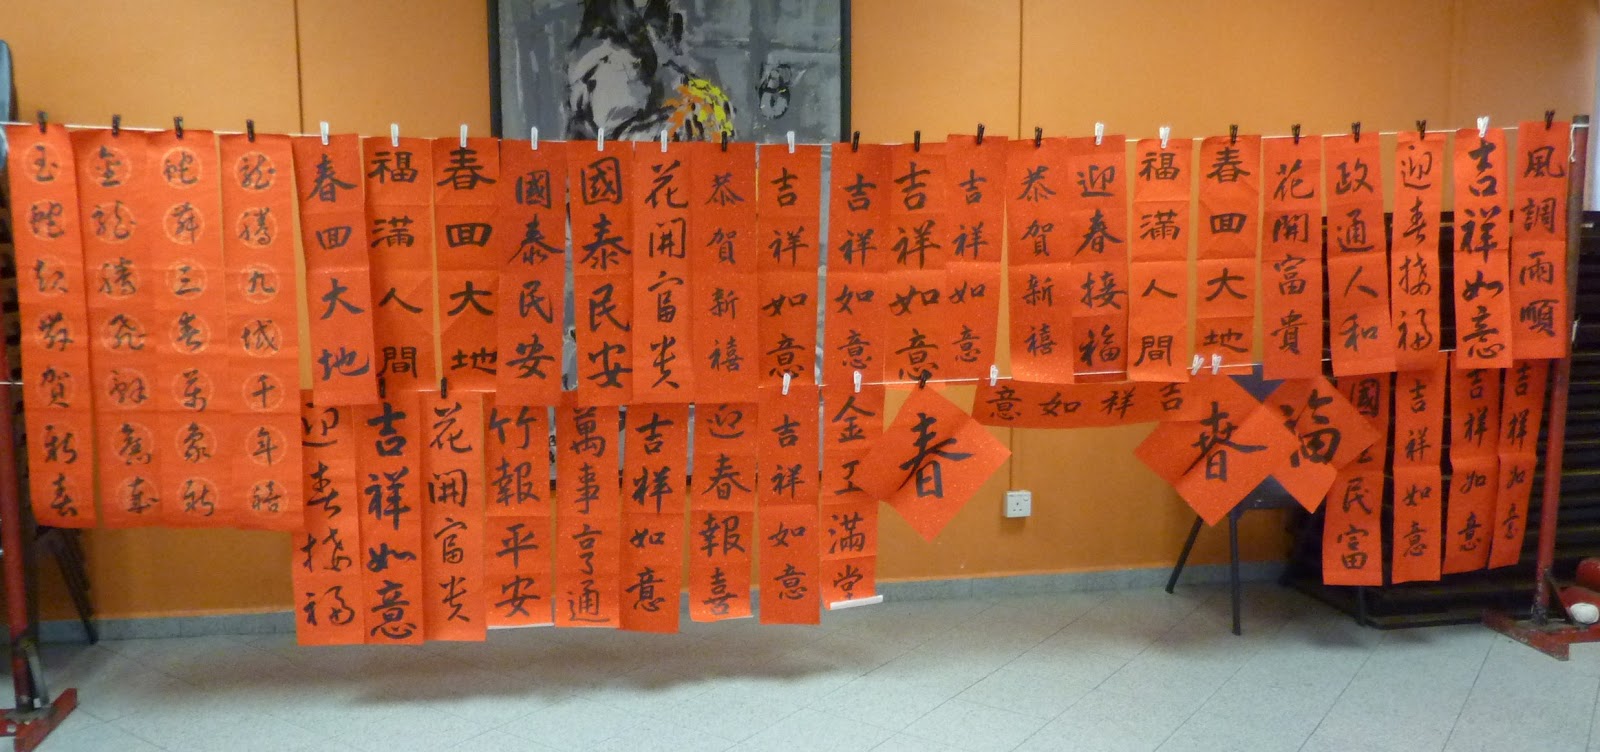 玉蛇起舞賀新春
金龍騰飛辭舊歲
蛇舞三春萬象新
龍騰九域千年皓
春回大地
福滿人間
春回大地
國泰民安
國泰民安
花開富贵
恭賀新禧
吉祥如意
吉祥如意
吉祥如意
吉祥如意
恭賀新禧
迎春接福
福滿人間
春回大地
花開富貴
政通人和
迎春接福
吉祥如意
風調雨順
迎春接福
吉祥如意
花開富贵
竹報平安
萬事亨通
吉祥如意
迎春報喜
吉祥如意
金玉滿堂
春
吉祥如意
春
福
國民富
吉祥如意
吉祥如意
吉祥如意